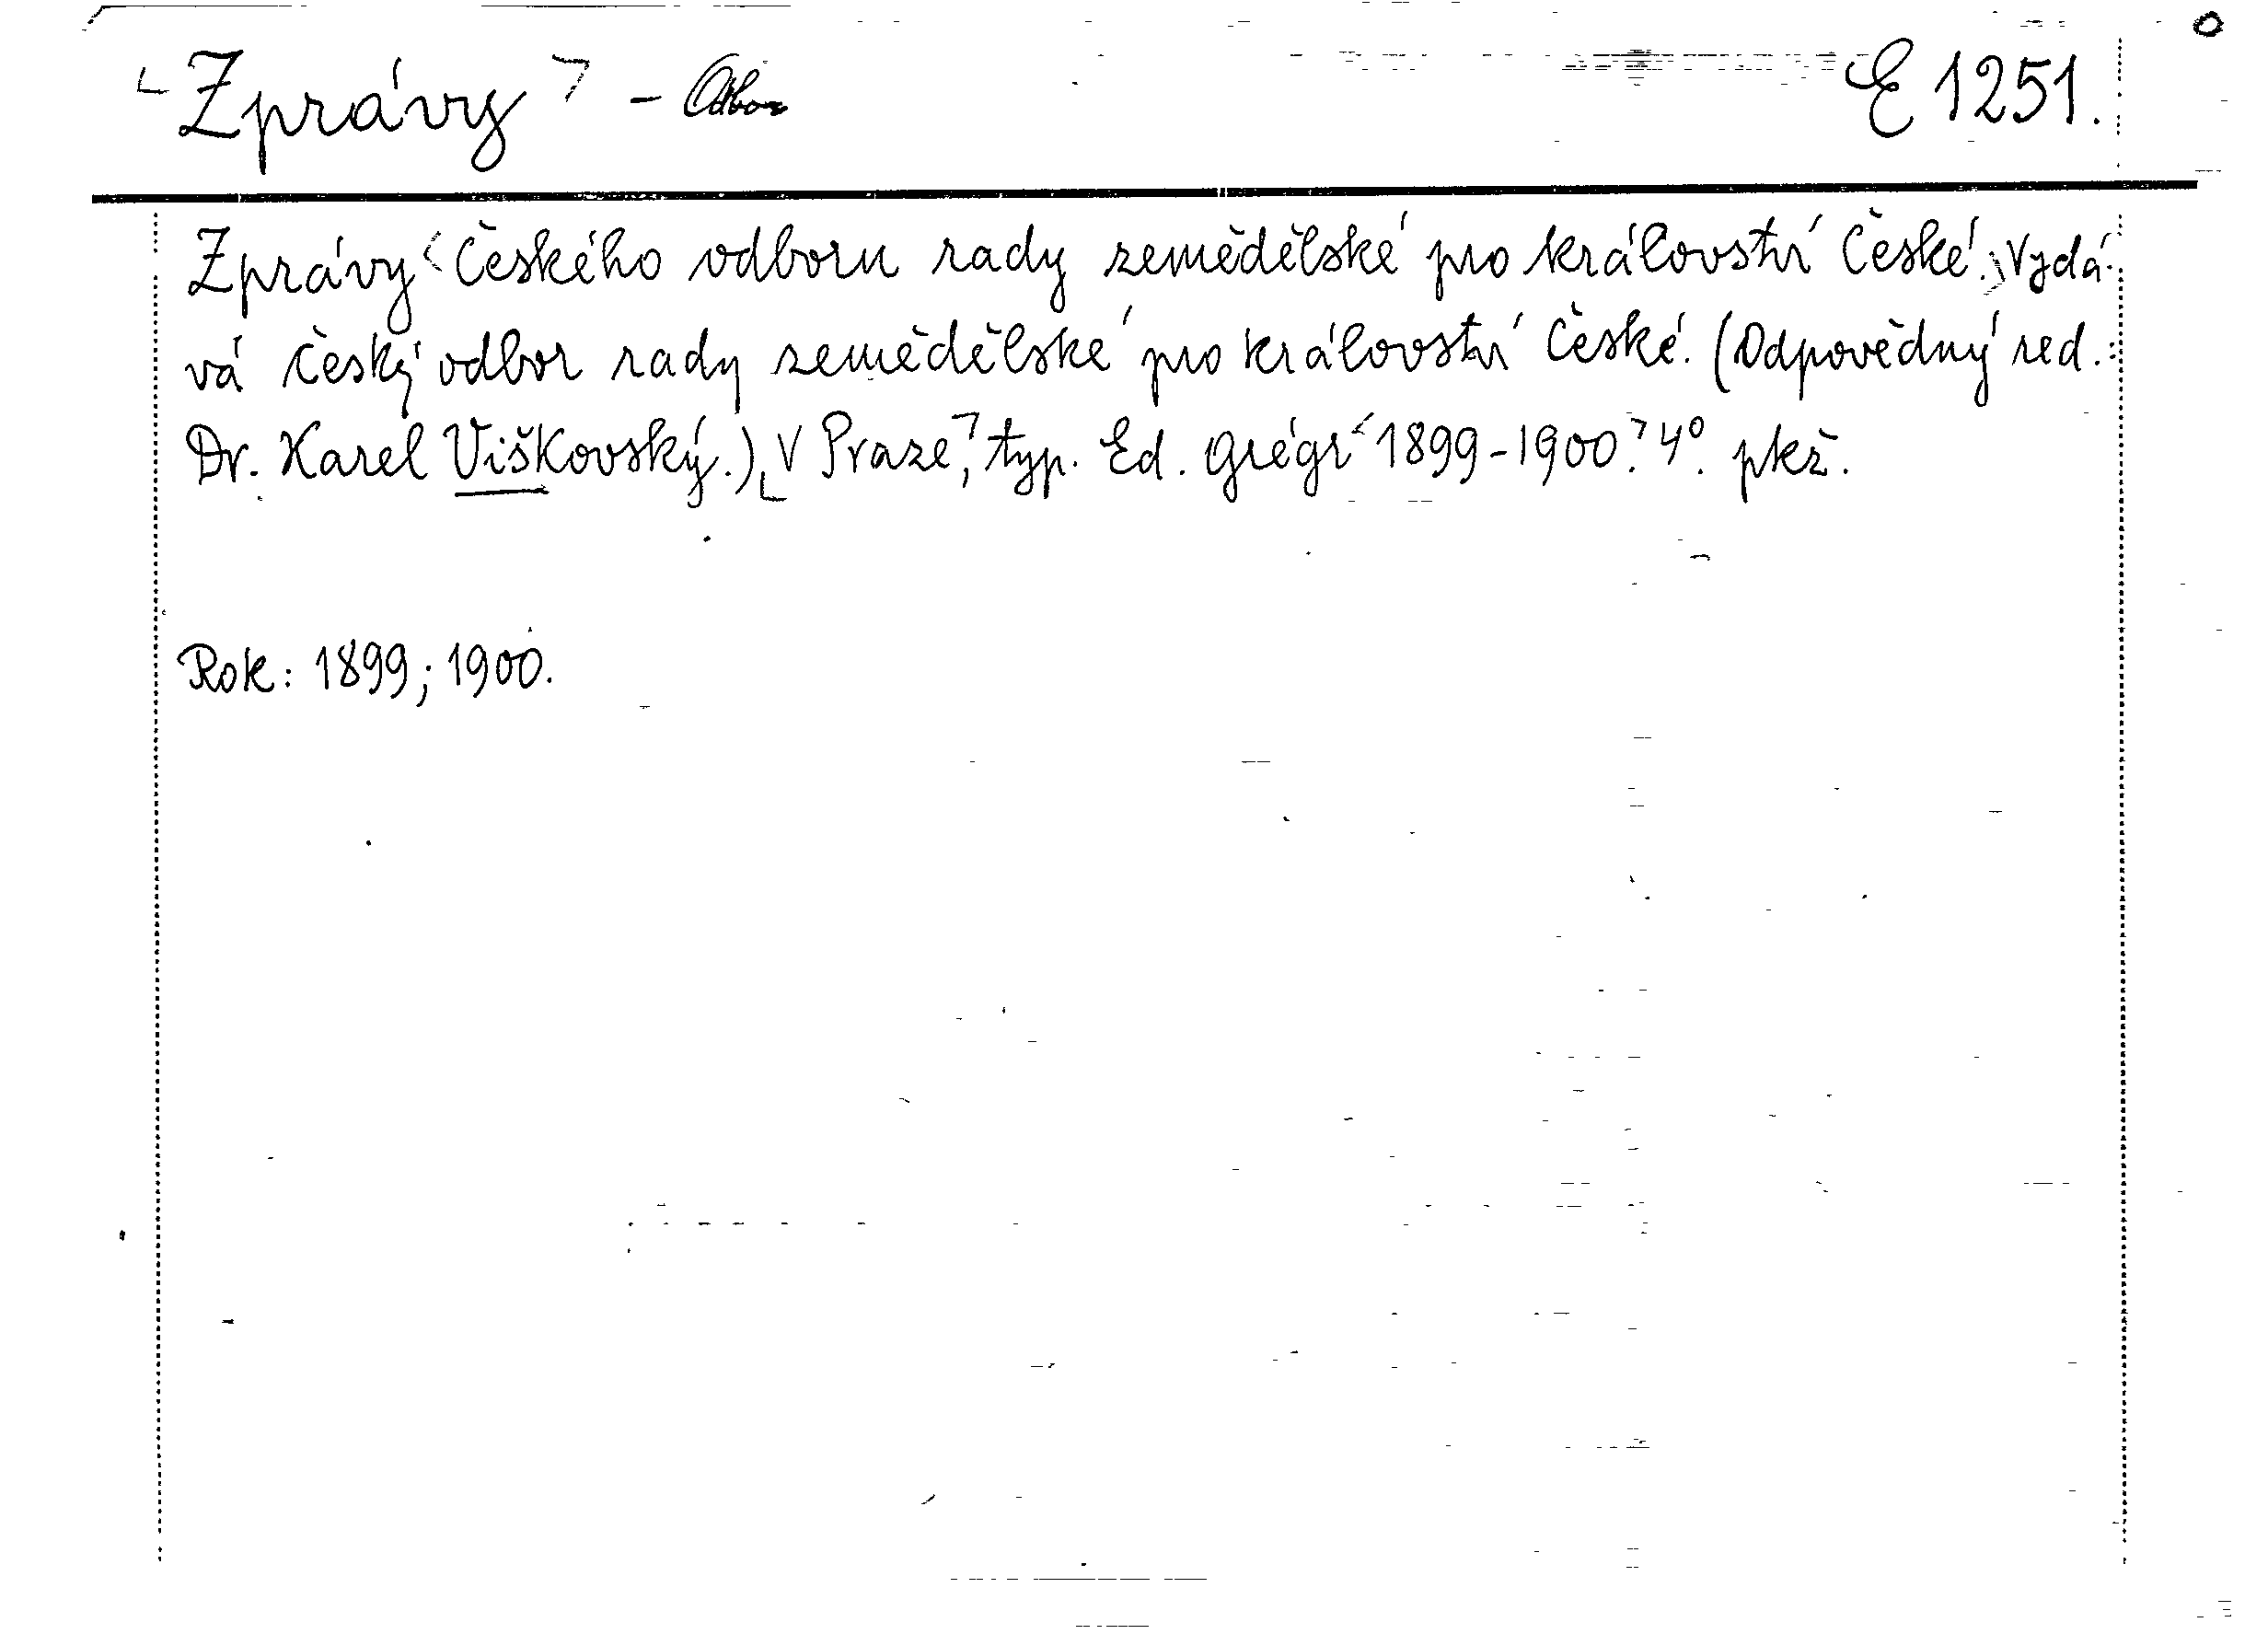 Zprávy - Odbor E 1251.
Zprávy Českého odboru rady zemědělské pro království České. Vydá-
vá český odbor rady zemědělské pro království České. (Odpovědný red.:
Dr. Karel Viškovský.) V Praze, typ. Ed. Grégr 1899-1900. 4°. pkž.
Rok: 1899; 1900.